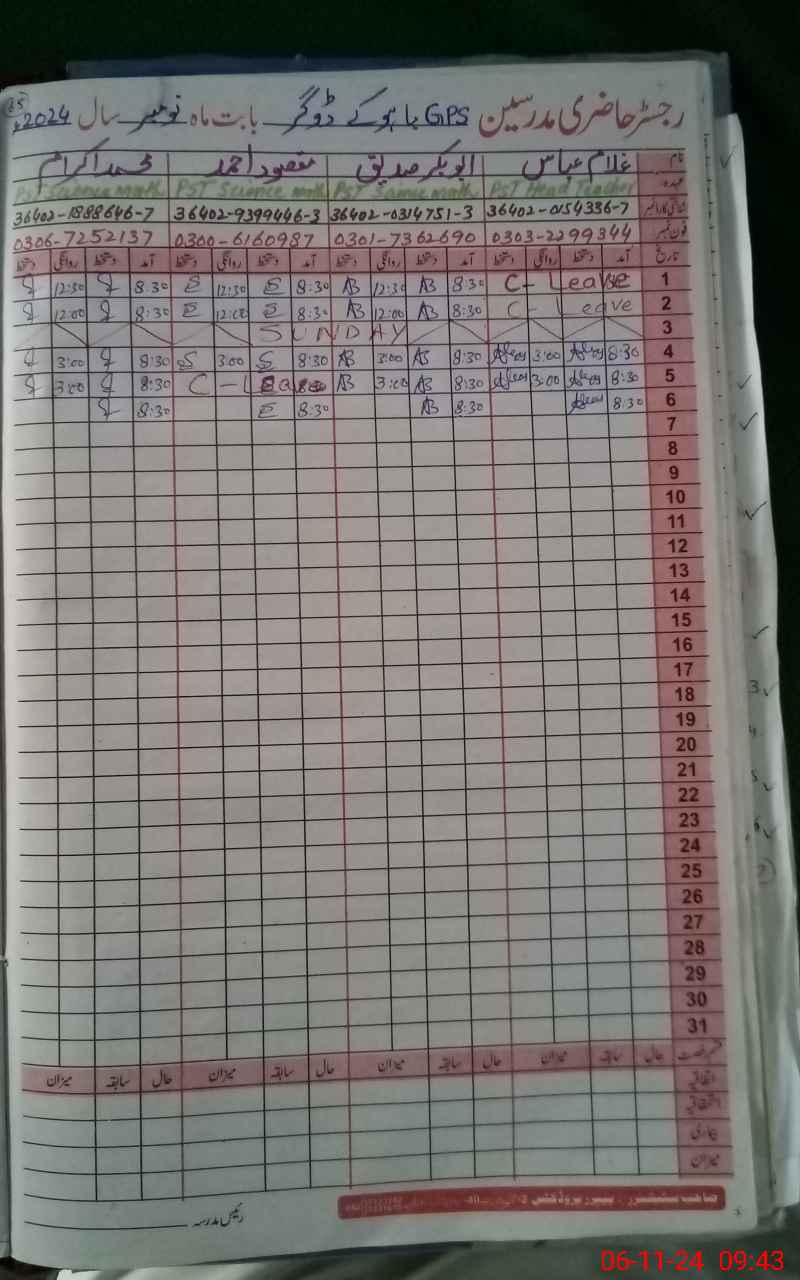 رجسٹر حاضری مدرسین GPS باہوکے ڈوگر بابت ماہ نومبر سال 2024ء
نام غلام عباس ابوبکر صدیق مقصود احمد محمد اکرام
عہدہ PST Head Teacher PST Science math PST Science math PST Science math
شناختی کارڈ نمبر 36402-0154336-7 36402-0314751-3 36402-9399446-3 36402-1888646-7
فون نمبر 0303-2299344 0301-7362690 0300-6160987 0306-7252137
تاریخ آمد دستخط روانگی دستخط آمد دستخط روانگی دستخط آمد دستخط روانگی دستخط آمد دستخط روانگی دستخط
1 C-Leave 8:30 AB 12:30 AB 8:30 12:30 8:30 12:30
2 C-Leave 8:30 AB 12:00 AB 8:30 12:00 8:30 12:00
3 SUNDAY
4 8:30 3:00 8:30 AB 3:00 AB 8:30 3:00 8:30 3:00
5 8:30 3:00 8:30 AB 3:00 AB C-Lea 8:30 3:00
6 8:30 8:30 AB 8:30 8:30
7
8
9
10
11
12
13
14
15
16
17
18
19
20
21
22
23
24
25
26
27
28
29
30
31
حال سابقہ میزان حال سابقہ میزان حال سابقہ میزان حال سابقہ میزان
میزان
رئیس مدرسہ
06-11-24 09:43